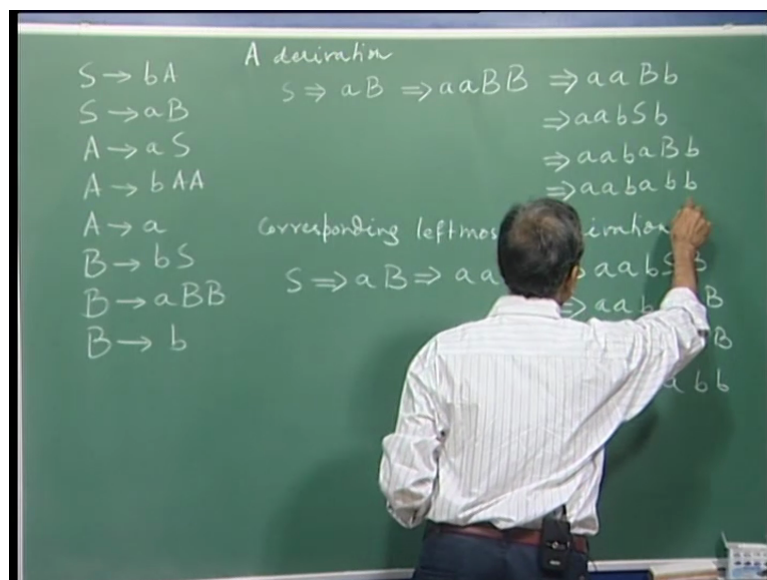 S → bA
S → aB
A → aS
A → bAA
A → a
B → bS
B → aBB
B → b
A derivation
S ⇒ aB ⇒ aaBB ⇒ aaBb
⇒ aabSb
⇒ aabaBb
⇒ aababb
Corresponding leftmos
S ⇒ aB ⇒ aa ⇒ aabSB
⇒ aab B
B
abb